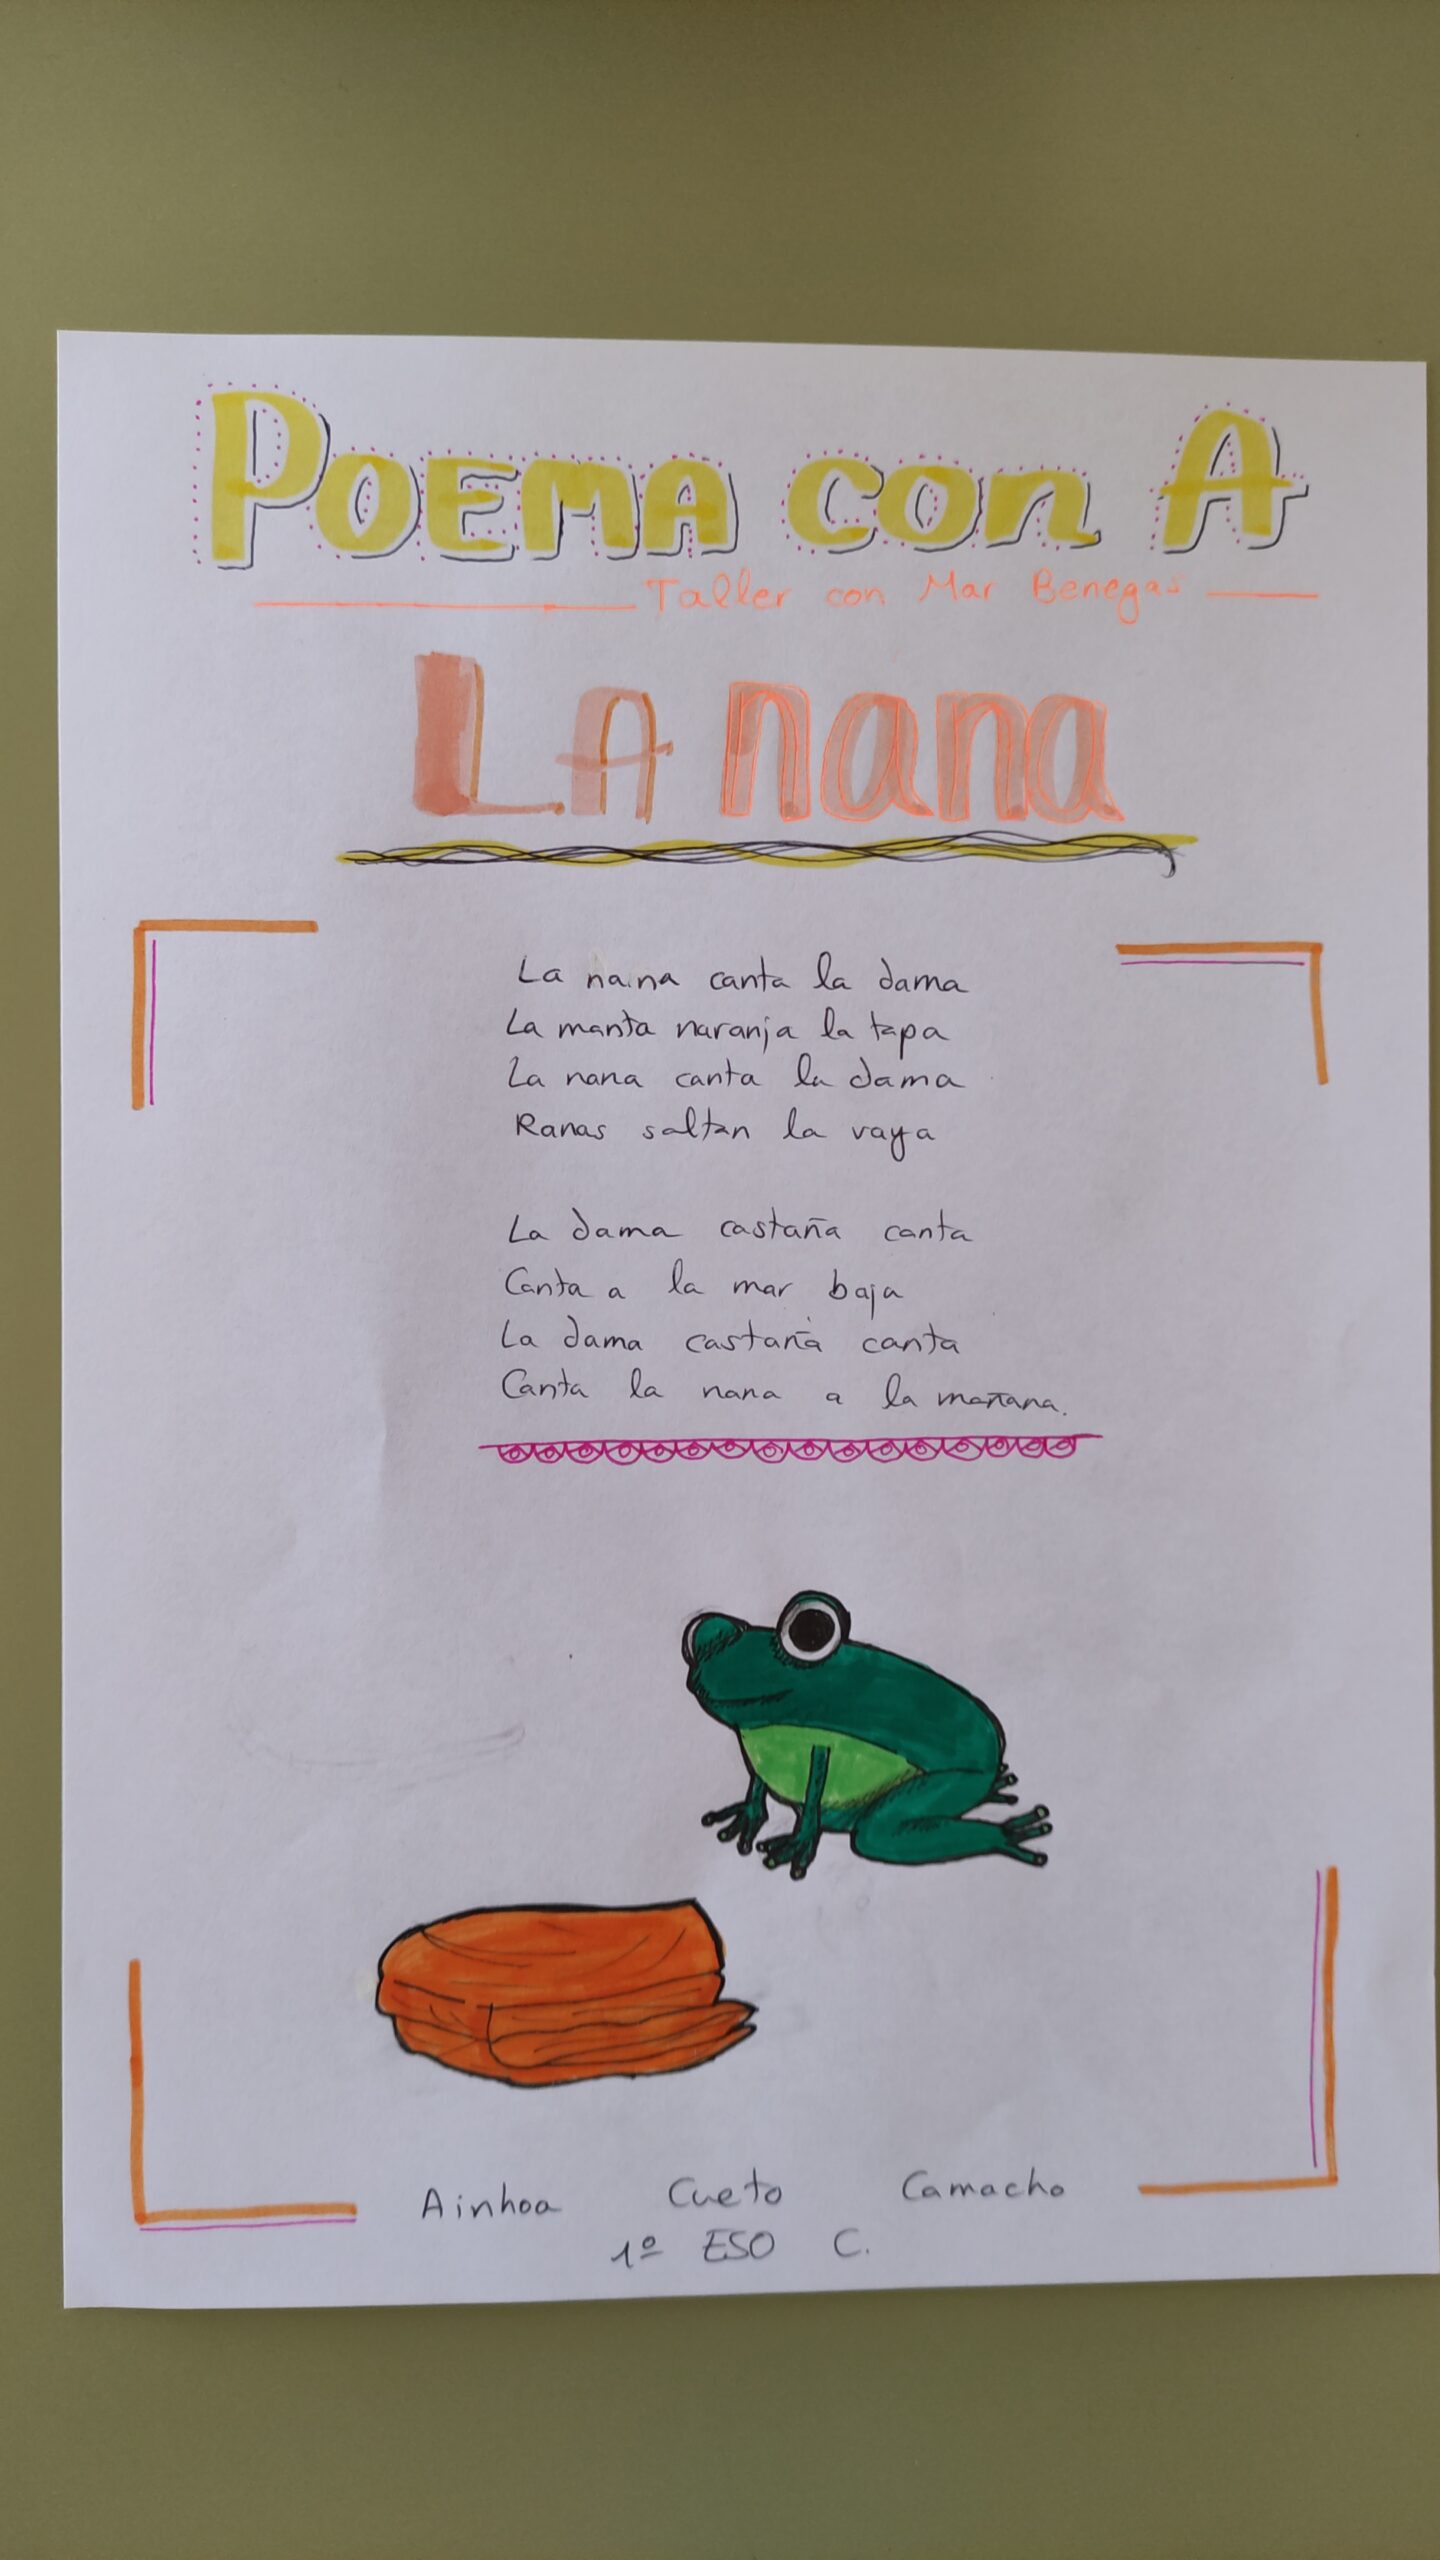 POEMA con A
Taller con Mar Benegas
LA nana
La nana canta la dama
La manta naranja la tapa
La nana canta la dama
Ranas saltan la vaya
La dama castaña canta
Canta a la mar baja
La dama castaña canta
Canta la nana a la mañana.
Ainhoa Cueto Camacho
1º ESO C.